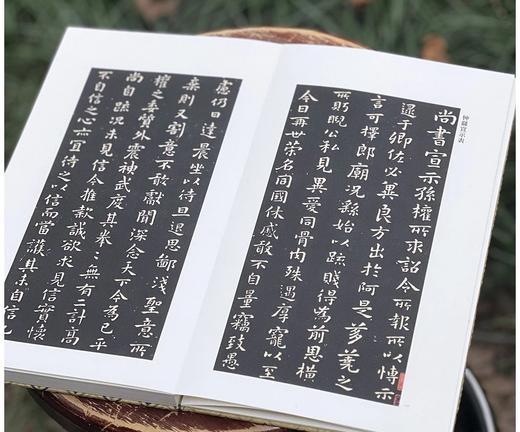 钟繇宣示表
尚書宣示孫權所求詔令所報所以博示
逮于卿佐必冀良方出於阿是芻蕘之
言可擇郎廟況繇始以疏賤得為前恩橫
所眄睨公私見異愛同骨肉殊遇厚寵以至
今日再世榮名同國休慼敢不自量竊致愚
慮仍日達晨坐以待旦退思鄙淺聖意所
棄則又割意不敢獻聞深念天下今為已平
權之委質外震神武度其拳〻無有二計高
尚自疏況未見信今推款誠欲求見信實懷
不自信之心亦宜待之以信而當護其未自信也